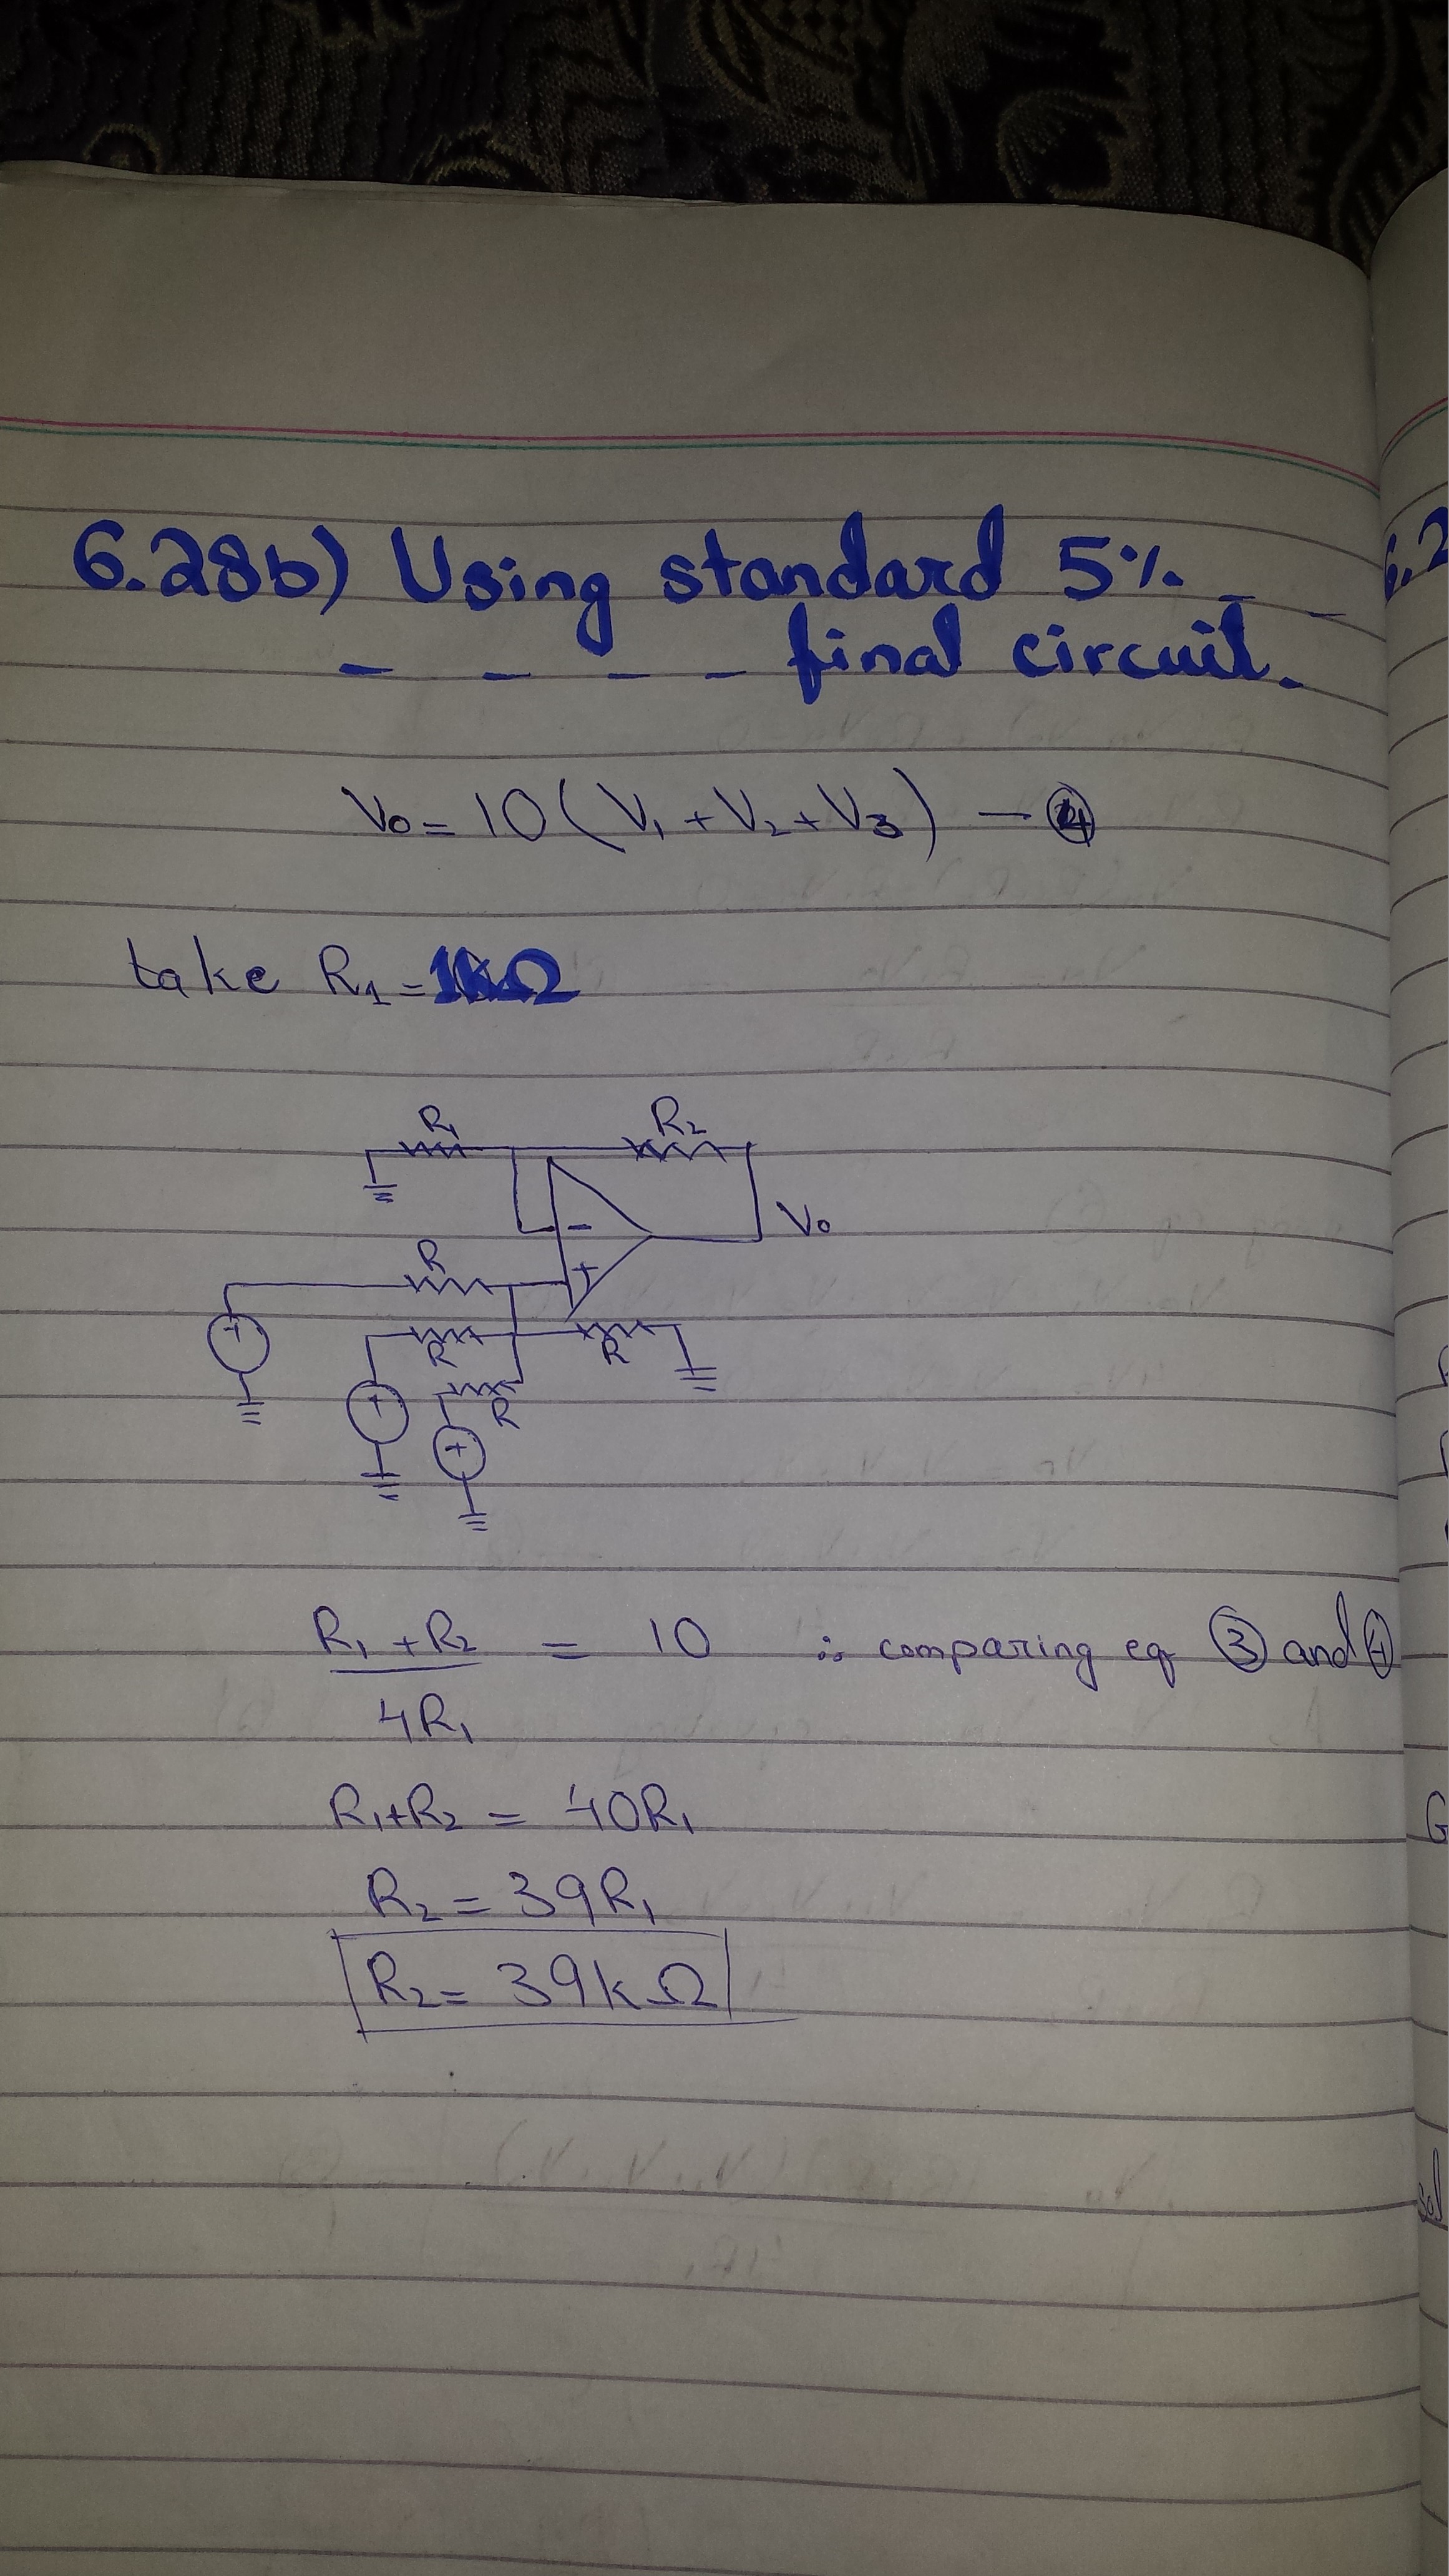 6.28b) Using standard 5% _ _
_ _ _ _ final circuit.
V₀ = 10(V₁ + V₂ + V₃) — ④
take R₁ = 1kΩ
R₁ R₂
- V₀
R
+
+ R R
+ R
+
R₁ + R₂ / 4R₁ = 10 ∴ comparing eq ③ and ④
R₁+R₂ = 40R₁
R₂ = 39R₁
R₂ = 39kΩ
6.2
G
sol